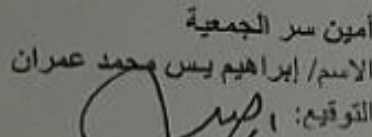 أمين سر الجمعية
الاسم/ إبراهيم يس محمد عمران
التوقيع: